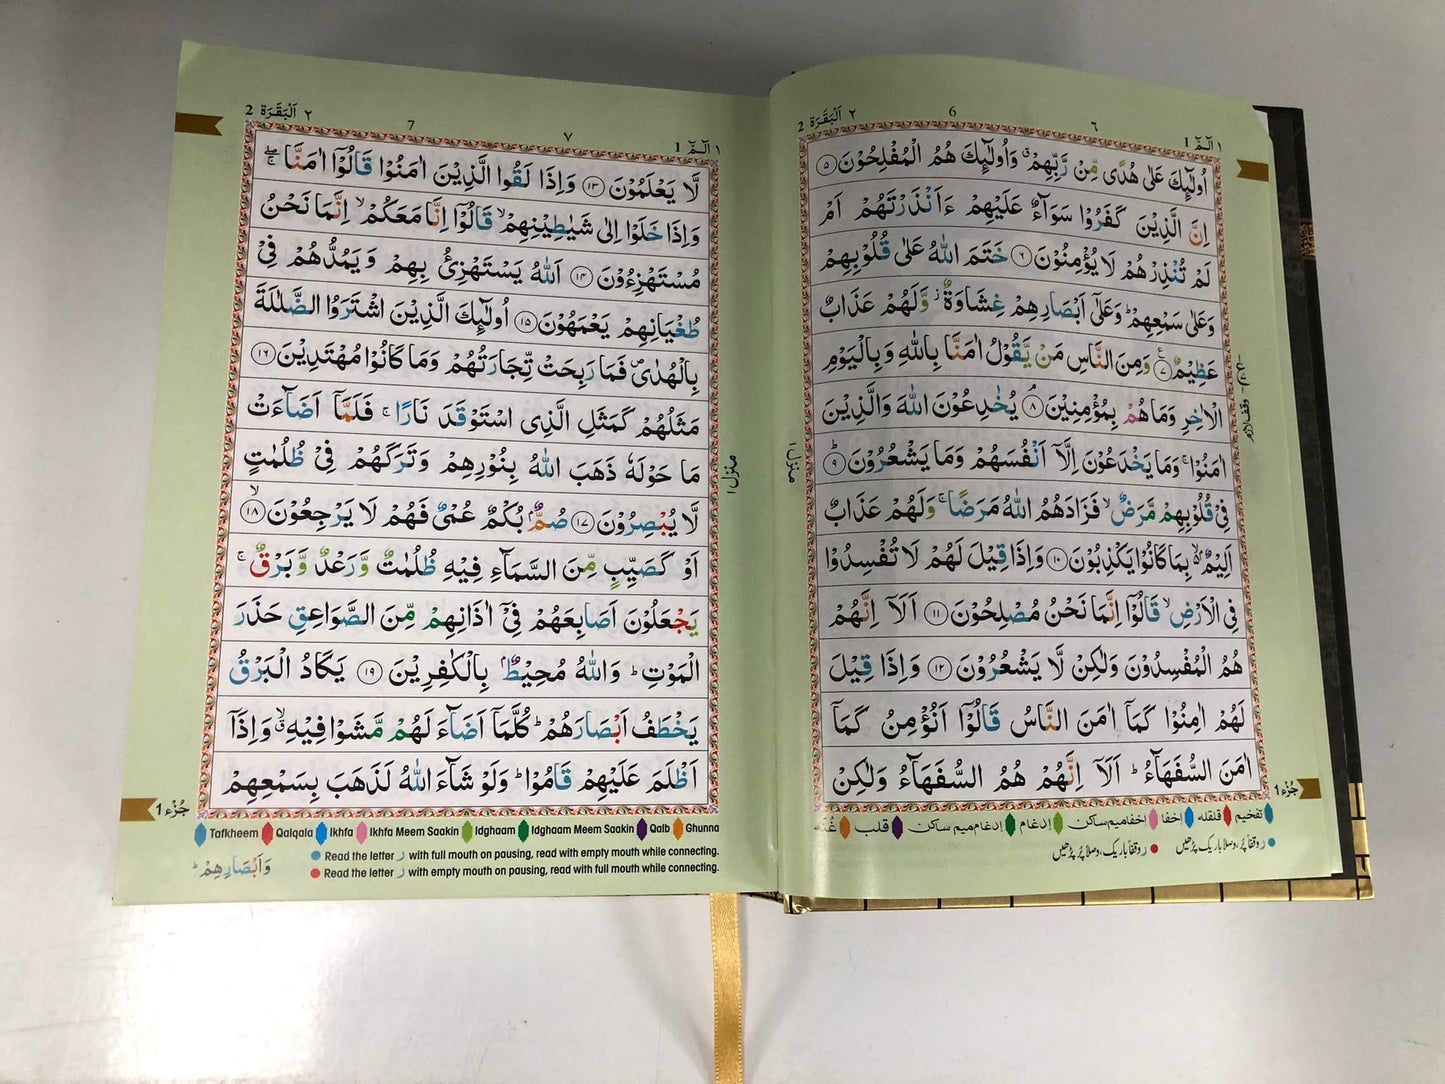 الٓمّٓ ١ 1
٦
6
٢ اَلْبَقَرَة 2
اُولٰٓئِكَ عَلٰى هُدًى مِّنْ رَّبِّهِمْ ۗ وَاُولٰٓئِكَ هُمُ الْمُفْلِحُوْنَ ۝٥
اِنَّ الَّذِيْنَ كَفَرُوْا سَوَآءٌ عَلَيْهِمْ ءَاَنْذَرْتَهُمْ اَمْ
لَمْ تُنْذِرْهُمْ لَا يُؤْمِنُوْنَ ۝٦ خَتَمَ اللّٰهُ عَلٰى قُلُوْبِهِمْ
وَعَلٰى سَمْعِهِمْ ؕ وَعَلٰٓى اَبْصَارِهِمْ غِشَاوَةٌ ؗ وَّلَهُمْ عَذَابٌ
عَظِيْمٌ ۝٧ وَمِنَ النَّاسِ مَنْ يَّقُوْلُ اٰمَنَّا بِاللّٰهِ وَبِالْيَوْمِ
الْاٰخِرِ وَمَا هُمْ بِمُؤْمِنِيْنَ ۝٨ يُخٰدِعُوْنَ اللّٰهَ وَالَّذِيْنَ
اٰمَنُوْا ۚ وَمَا يَخْدَعُوْنَ اِلَّآ اَنْفُسَهُمْ وَمَا يَشْعُرُوْنَ ۝٩ؕ
فِيْ قُلُوْبِهِمْ مَّرَضٌ ۙ فَزَادَهُمُ اللّٰهُ مَرَضًا ۚ وَلَهُمْ عَذَابٌ
اَلِيْمٌۢ ۙ بِمَا كَانُوْا يَكْذِبُوْنَ ۝١٠ وَاِذَا قِيْلَ لَهُمْ لَا تُفْسِدُوْا
فِي الْاَرْضِ ۙ قَالُوْٓا اِنَّمَا نَحْنُ مُصْلِحُوْنَ ۝١١ اَلَآ اِنَّهُمْ
هُمُ الْمُفْسِدُوْنَ وَلٰكِنْ لَّا يَشْعُرُوْنَ ۝١٢ وَاِذَا قِيْلَ
لَهُمْ اٰمِنُوْا كَمَآ اٰمَنَ النَّاسُ قَالُوْٓا اَنُؤْمِنُ كَمَآ
اٰمَنَ السُّفَهَآءُ ؕ اَلَآ اِنَّهُمْ هُمُ السُّفَهَآءُ وَلٰكِنْ
وقف لازم
منزل ١
جُزْء 1
تفخيم قلقله اخفا اخفا ميم ساكن ادغام ادغام ميم ساكن قلب غُنّه
ر وقفاً پُر، وصلاً باریک پڑھیں ر وقفاً باریک، وصلاً پُر پڑھیں
الٓمّٓ ١ 1
٧
7
٢ اَلْبَقَرَة 2
لَّا يَعْلَمُوْنَ ۝١٣ وَاِذَا لَقُوا الَّذِيْنَ اٰمَنُوْا قَالُوْٓا اٰمَنَّا ۖۚ
وَاِذَا خَلَوْا اِلٰى شَيٰطِيْنِهِمْ ۙ قَالُوْٓا اِنَّا مَعَكُمْ ۙ اِنَّمَا نَحْنُ
مُسْتَهْزِءُوْنَ ۝١٤ اَللّٰهُ يَسْتَهْزِئُ بِهِمْ وَيَمُدُّهُمْ فِيْ
طُغْيَانِهِمْ يَعْمَهُوْنَ ۝١٥ اُولٰٓئِكَ الَّذِيْنَ اشْتَرَوُا الضَّلٰلَةَ
بِالْهُدٰى ۪ فَمَا رَبِحَتْ تِّجَارَتُهُمْ وَمَا كَانُوْا مُهْتَدِيْنَ ۝١٦
مَثَلُهُمْ كَمَثَلِ الَّذِى اسْتَوْقَدَ نَارًا ۚ فَلَمَّآ اَضَآءَتْ
مَا حَوْلَهٗ ذَهَبَ اللّٰهُ بِنُوْرِهِمْ وَتَرَكَهُمْ فِيْ ظُلُمٰتٍ
لَّا يُبْصِرُوْنَ ۝١٧ صُمٌّۢ بُكْمٌ عُمْيٌ فَهُمْ لَا يَرْجِعُوْنَ ۝١٨ۙ
اَوْ كَصَيِّبٍ مِّنَ السَّمَآءِ فِيْهِ ظُلُمٰتٌ وَّرَعْدٌ وَّبَرْقٌ ۚ
يَجْعَلُوْنَ اَصَابِعَهُمْ فِيْٓ اٰذَانِهِمْ مِّنَ الصَّوَاعِقِ حَذَرَ
الْمَوْتِ ؕ وَاللّٰهُ مُحِيْطٌۢ بِالْكٰفِرِيْنَ ۝١٩ يَكَادُ الْبَرْقُ
يَخْطَفُ اَبْصَارَهُمْ ؕ كُلَّمَآ اَضَآءَ لَهُمْ مَّشَوْا فِيْهِ ۙ وَاِذَآ
اَظْلَمَ عَلَيْهِمْ قَامُوْا ؕ وَلَوْ شَآءَ اللّٰهُ لَذَهَبَ بِسَمْعِهِمْ
منزل ١
جُزْء 1
Tafkheem Qalqala Ikhfa Ikhfa Meem Saakin Idghaam Idghaam Meem Saakin Qalb Ghunna
Read the letter ر with full mouth on pausing, read with empty mouth while connecting.
Read the letter ر with empty mouth on pausing, read with full mouth while connecting.
وَاَبْصَارِهِمْ ؕ